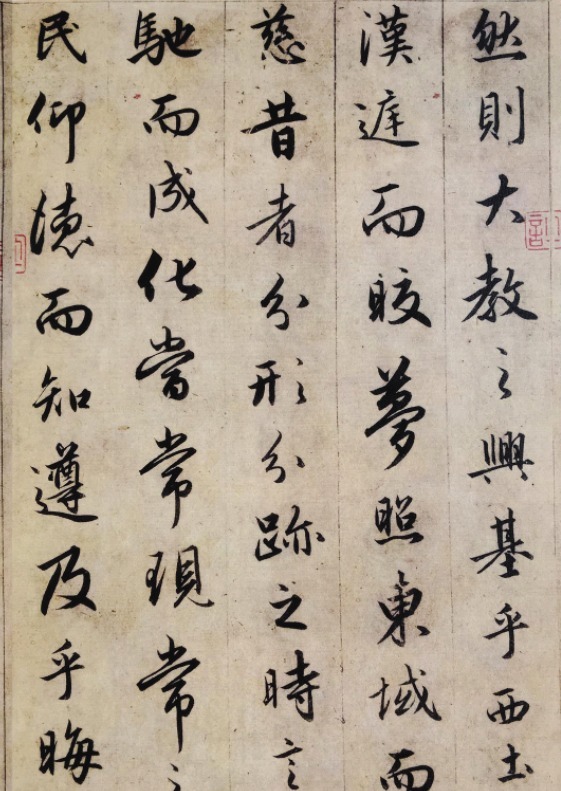 然則大教之興基乎西土
漢遑而皎夢照東域而
慈昔者分形分跡之時言
馳而成化當常現常之
民仰德而知遵及乎晦